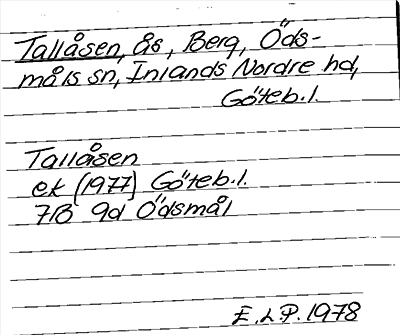 Tallåsen, ås, Berg, Öds-
måls sn, Inlands Nordre hd,
Göteb.l.
Tallåsen
ek (1977) Göteb.l.
7B 9d Ödsmål
E.L.P. 1978